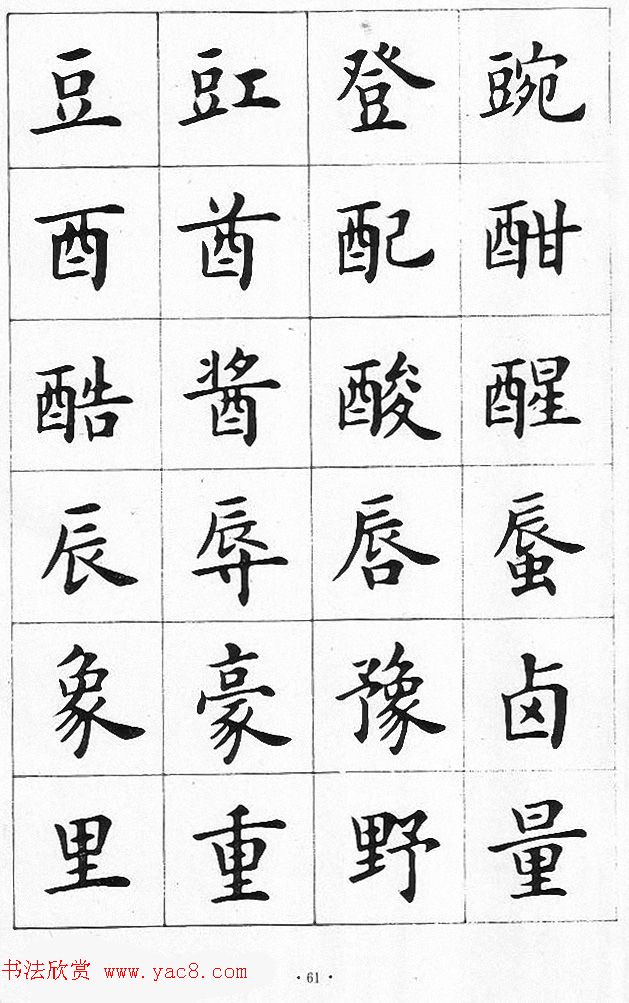 豆豇登豌
酉酋配酣
酷酱酸醒
辰辱唇蜃
象豪豫卤
里重野量
书法欣赏 www.yac8.com
·61·